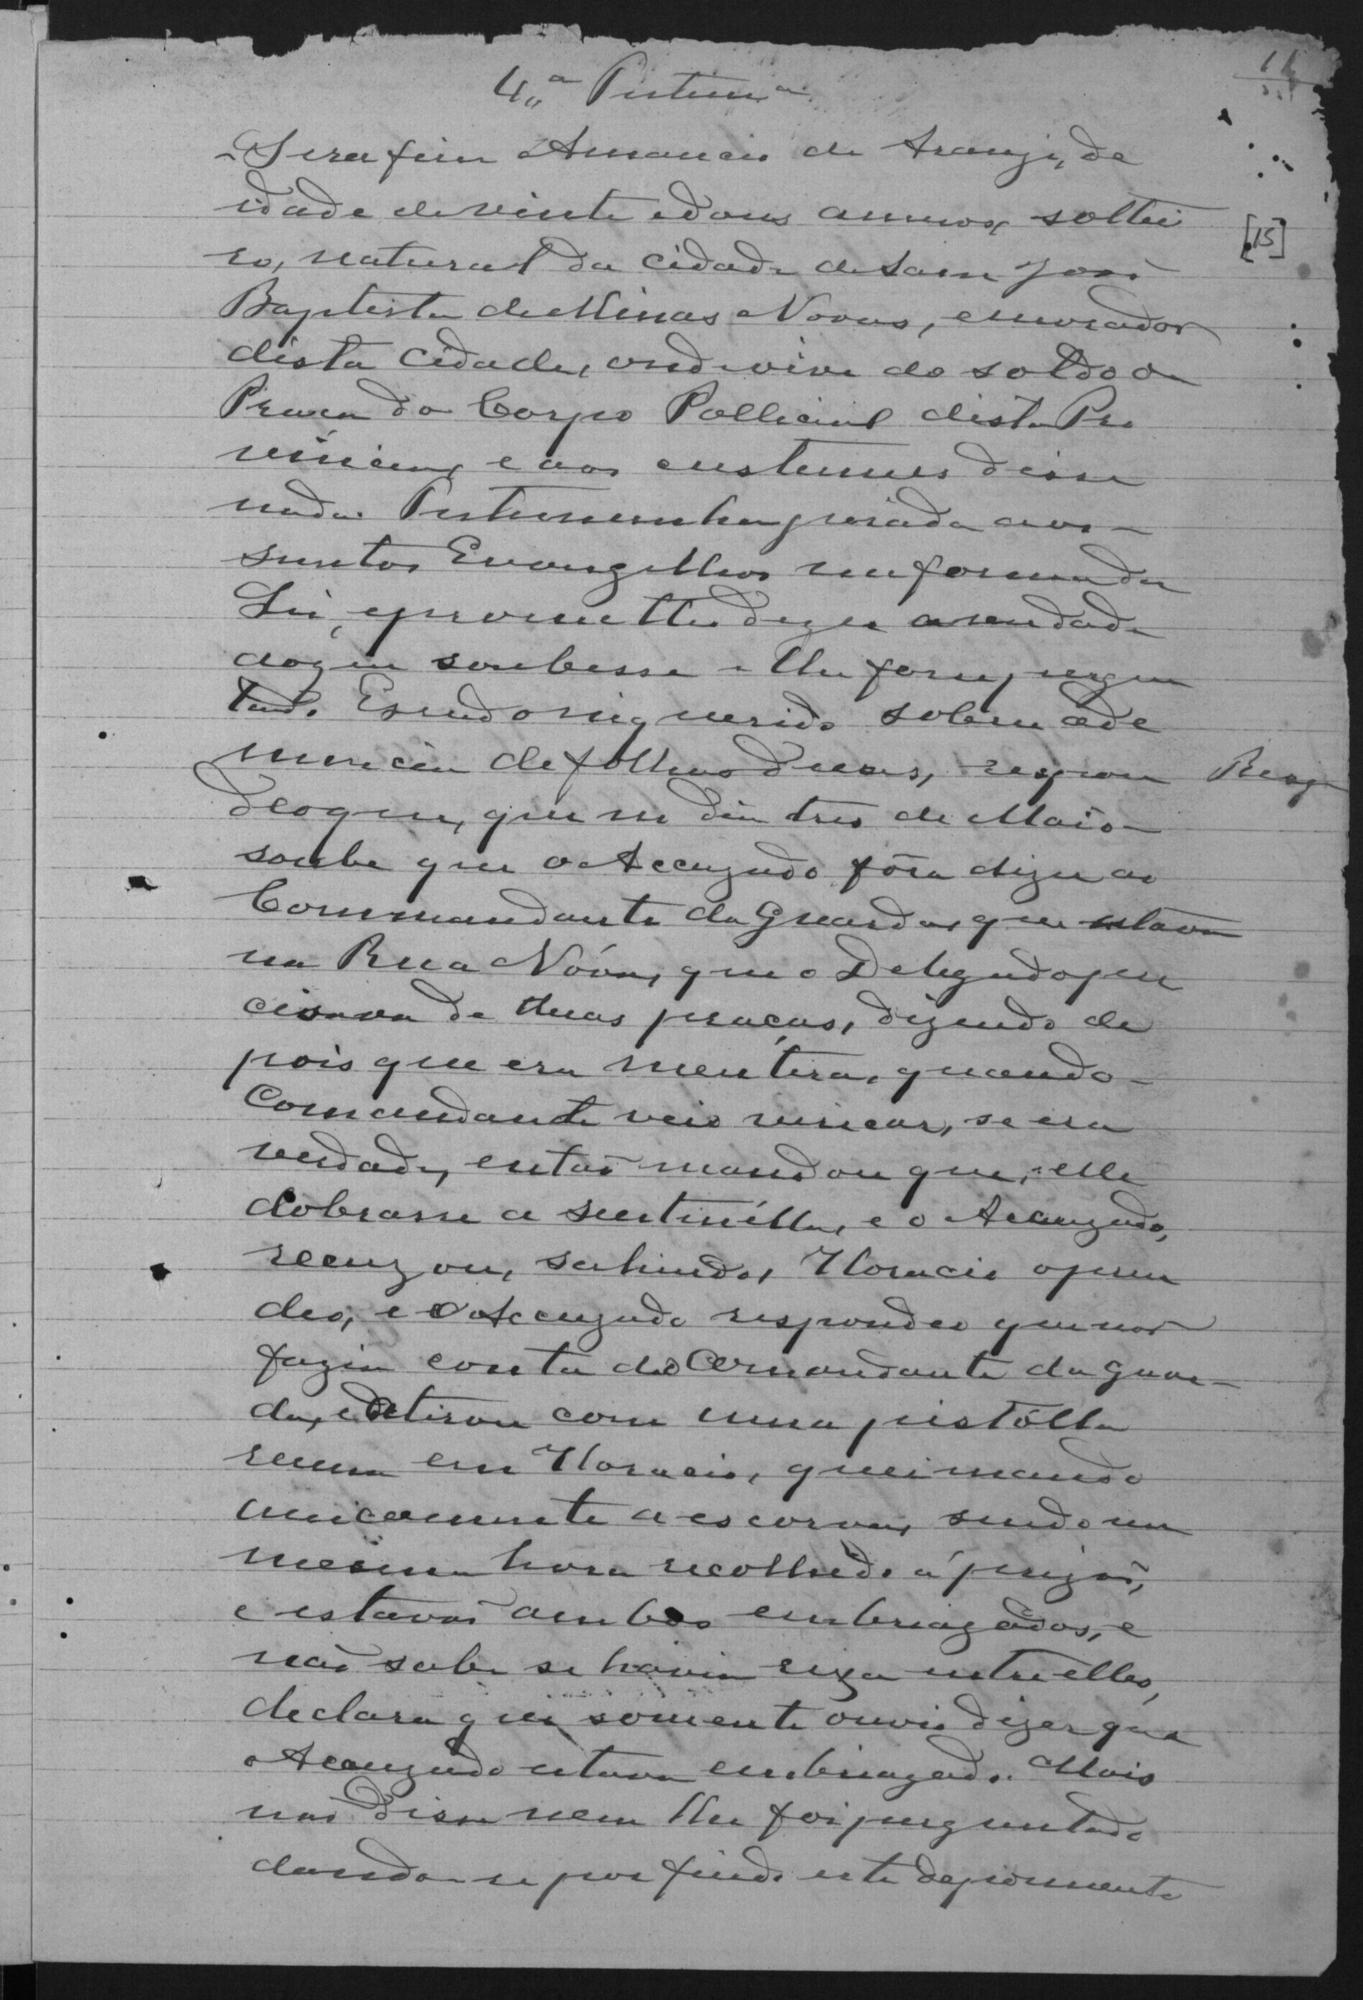 14
4,,ª Testemª
Serafim Amancio de Araujo, de
idade de vinte e dous annos, soltei
ro, natural da cidade de Sam João
Baptista de Minas Novas, e morador
desta cidade, onde vive do soldo de
Praça do Corpo Pollicial desta Pro
vincia, e aos custumes disse
nada. Testemunha jurada aos
santos Evangelhos em forma da
Lei, e prometteo dizer a verdade
do que soubesse e lhe fosse pergun
tado. E sendo inquerido sobre a de
nuncia de folhas duas, respon
deo que, que no dia tres de Maio
soube que o Accuzado fôra dizer ao
Commandante da Guarda, que estava
na Rua Nóva, que o Delegado per
cisava de duas praças, dizendo de
pois que era mentira, quando
Comandante veio vericar, se era
verdade, então mandou que, elle
dobrasse a sentinélla, e o Accuzado,
recuzou, sahindo, Horacio o pren
deo, e o Accuzado respondeo que não
fazia conta do Comandante da Guar
da, e atirou com uma pistólla
reuna em Horacio, queimando
unicamente a escorva, sendo na
mesma hora recolhido á prizão,
e estavão ambos embriagados, e
não sabe se havia rixa entre elles,
declara que somente ouvio dizer que
o Accuzado estava embriagado. Mais
não disse nem lhe foi perguntado
dando-se por findo este depoimento
[15]
Resp